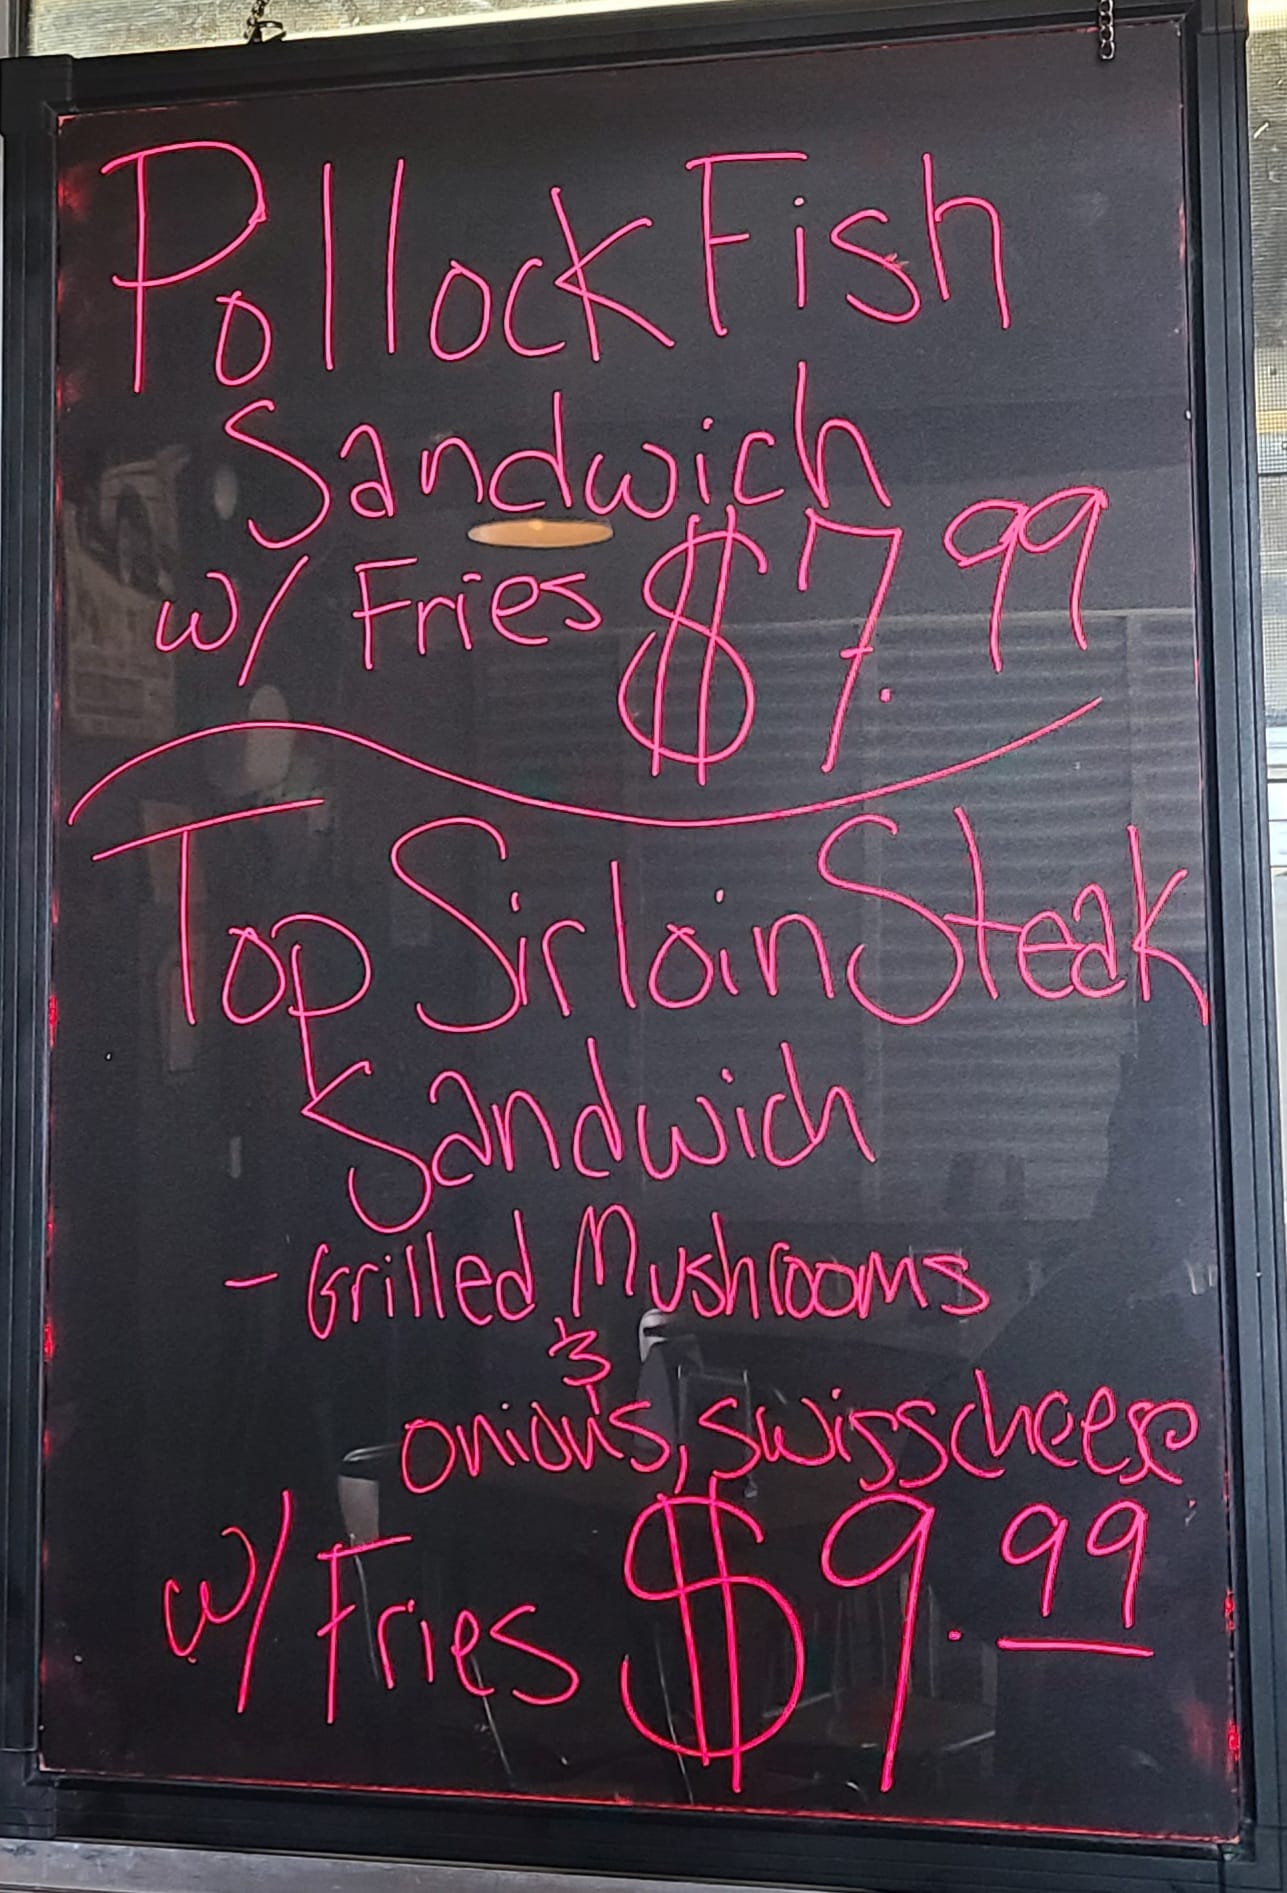 Pollock Fish
Sandwich
w/ Fries $7.99
Top Sirloin Steak
Sandwich
- Grilled Mushrooms
&
onions, swiss cheese
w/ Fries $9.99